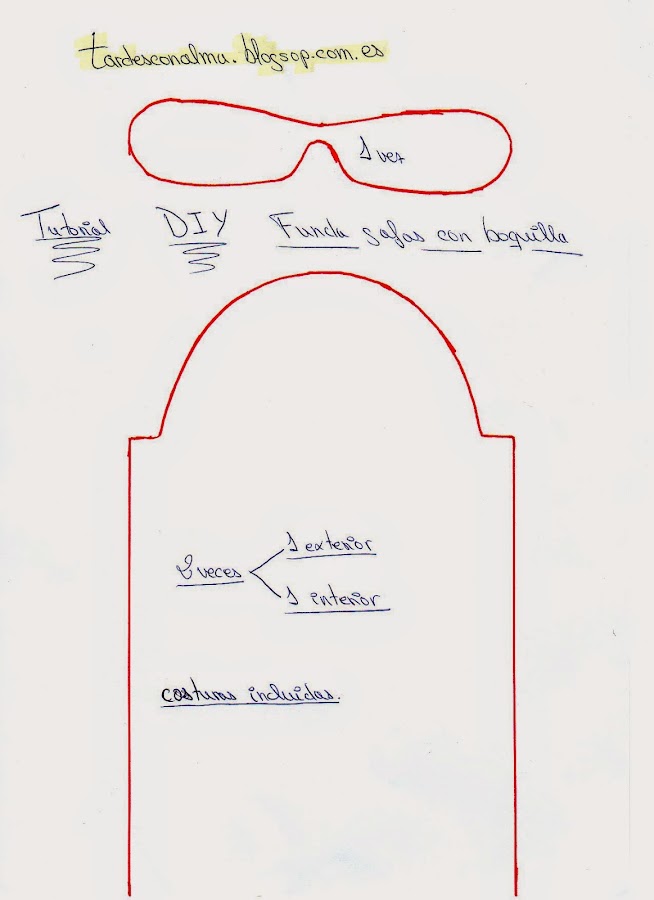 tardesconalma.blogsop.com.es
1 vez
Tutorial DIY Funda gafas con boquilla
1 exterior
2 veces
1 interior
costuras incluidas.